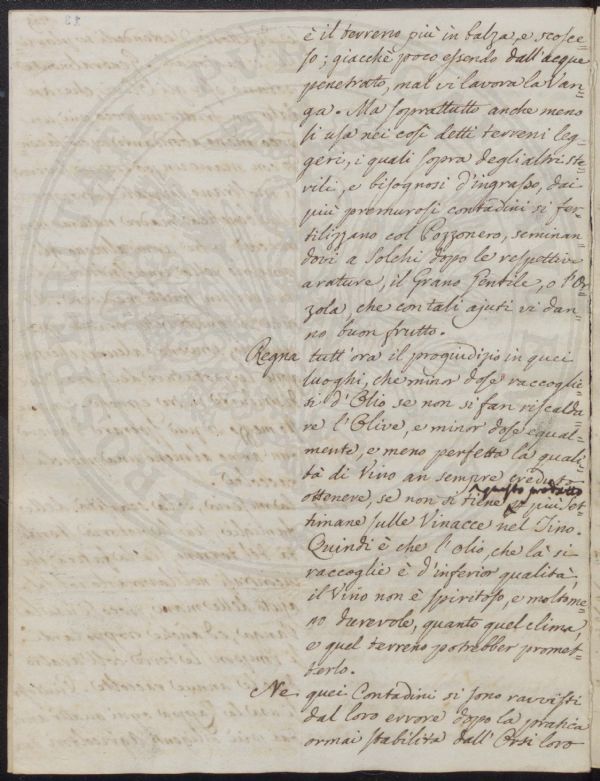 è il terreno più in balza, e scosce=
so; giacchè poco essendo dall'acque
penetrato, mal vi lavora la Van=
ga. Ma soprattutto anche meno
si usa nei così detti terreni leg=
geri, i quali sopra degli altri ste=
rili, e bisognosi d'ingrasso, dai
più premurosi contadini si fer=
tilizzano col Pozzonero, seminan=
dovi a Solchi dopo le respettive
arature, il Grano Gentile, o l'Or=
zola, che con tali ajuti vi dan=
no buon frutto.
Regna tutt'ora il progiudizio in quei
luoghi, che minor dose raccoglie=
si d'Olio se non si fan riscalda=
re l'Olive, e minor dose egual=
mente, e meno perfetta la quali=
tà di Vino an sempre creduto
questo prodotto
ottenere, se non si tiene più set=
timane sulle Vinacce nel Tino.
Quindi è che l'Olio, che là si
raccoglie è d'inferior qualità,
il Vino non è spiritoso, e molto me=
no durevole, quanto quel clima,
e quel terreno potrebber promet=
terlo.
Ne quei Contadini si sono ravvisti
dal loro errore doppo la pratica
ormai stabilita dall' Orsi loro